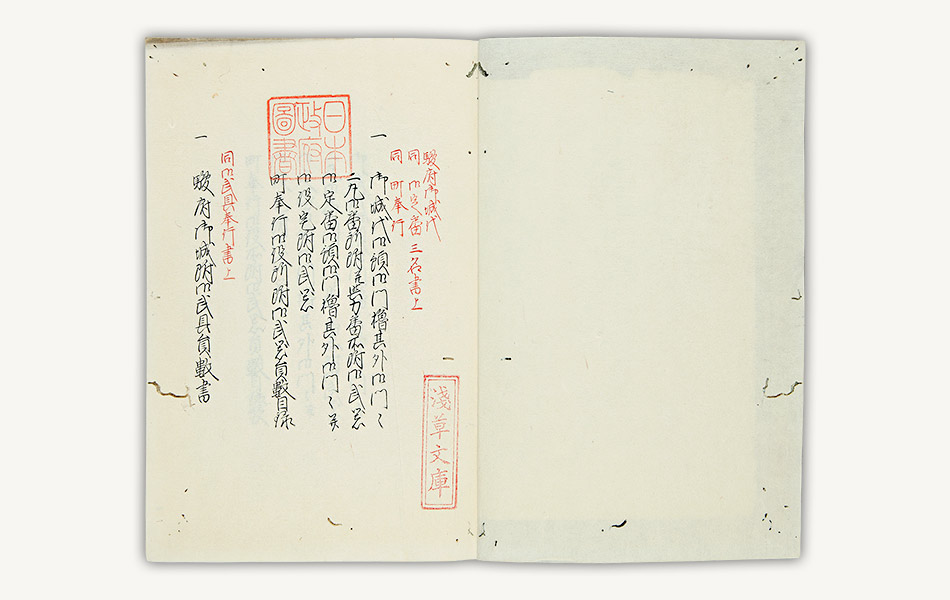 駿府御城代
同 御定番 三名書上
同 町奉行
一 御城代御預御門櫓其外御門々
二丸御番所附並与力番所附御武器
御定番御預御門櫓其外御門々并
御役宅附御武器
町奉行御役所附御武器員數目録
同御武具奉行書上
一 駿府御城附御武具員數書
日本
政府
圖書
淺草文庫